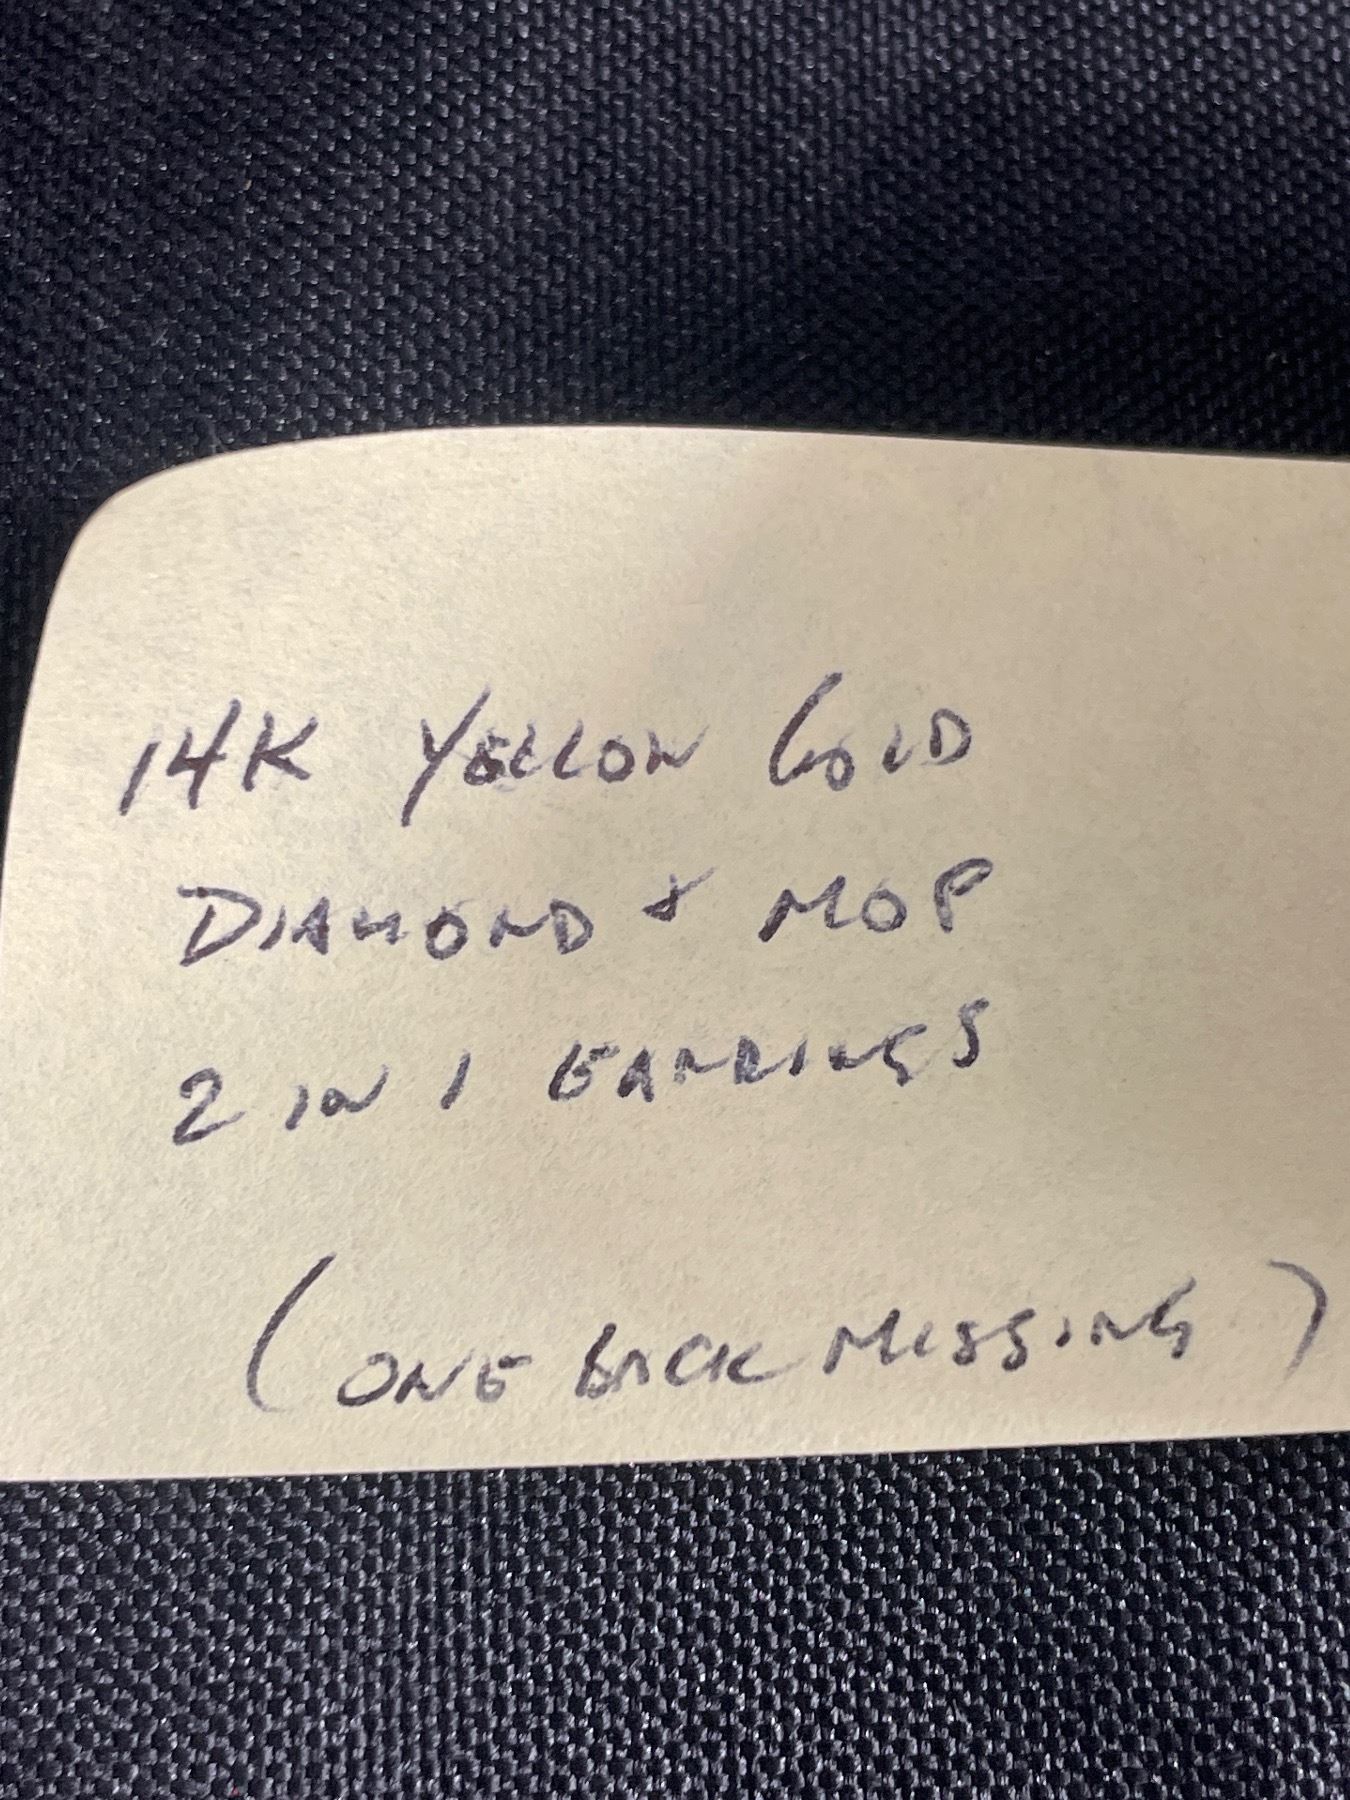 14K YELLOW GOLD
DIAMOND + MOP
2 IN 1 EARRINGS
(ONE BACK MISSING)